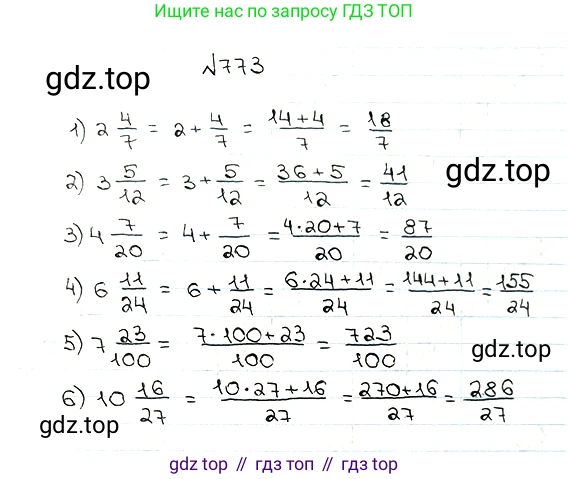 Ищите нас по запросу ГДЗ ТОП
№773
gdz.top
1) 2 4/7 = 2 + 4/7 = 14+4/7 = 18/7
2) 3 5/12 = 3 + 5/12 = 36+5/12 = 41/12
gdz.top
3) 4 7/20 = 4 + 7/20 = 4·20+7/20 = 87/20
4) 6 11/24 = 6 + 11/24 = 6·24+11/24 = 144+11/24 = 155/24
5) 7 23/100 = 7·100+23/100 = 723/100
gdz.top
6) 10 16/27 = 10·27+16/27 = 270+16/27 = 286/27
gdz.top
gdz top // гдз топ // гдз.топ